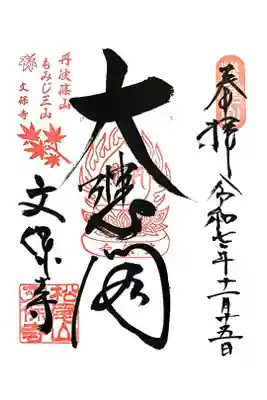 奉拝 令和七年十一月十五日
大悲閣
文保寺
丹波篠山
もみじ三山
文保寺
松尾山
文保寺